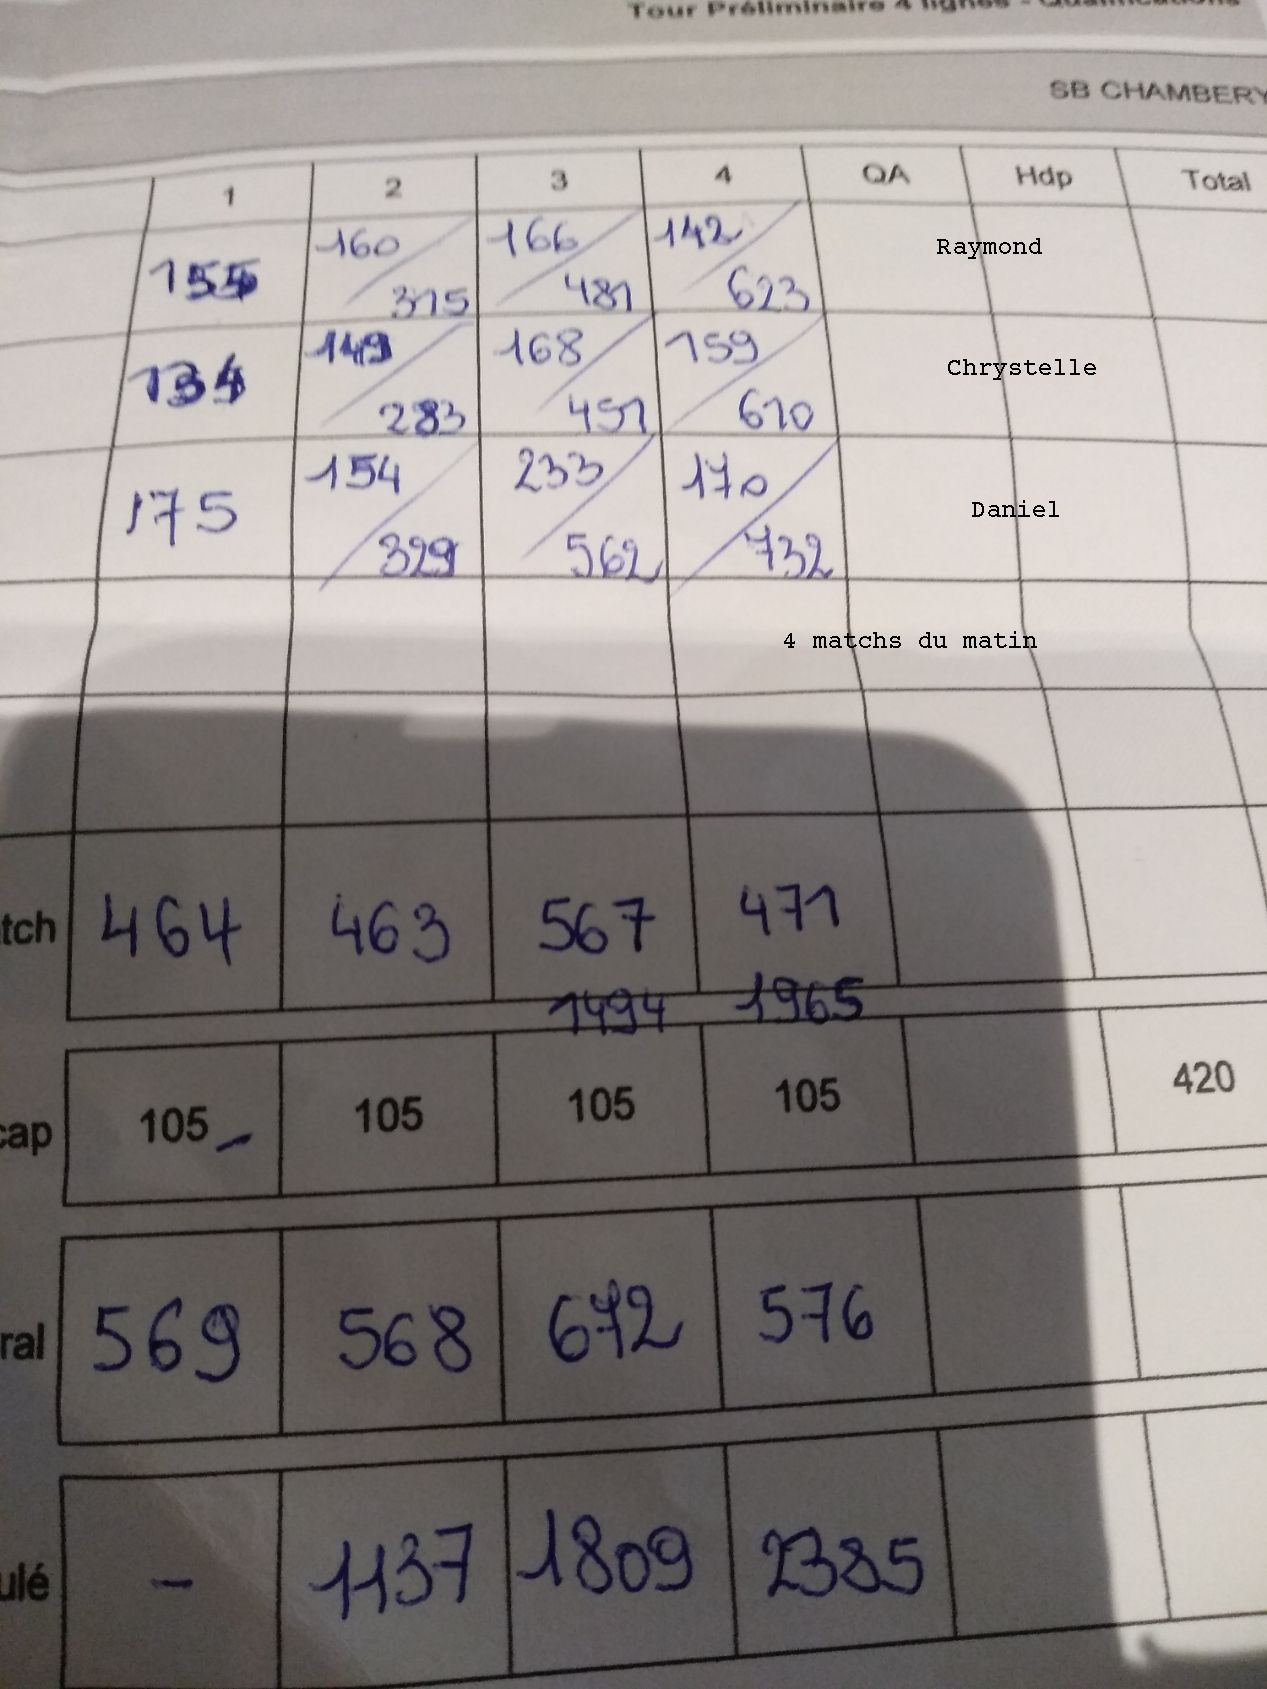 Tour Préliminaire 4 lignes - Qualifications
SB CHAMBERY
1 2 3 4 QA Hdp Total
155 160 166 142 Raymond
315 481 623
134 149 168 159 Chrystelle
283 451 610
175 154 233 170 Daniel
329 562 732
4 matchs du matin
tch 464 463 567 471
1494 1965
cap 105 - 105 105 105 420
ral 569 568 672 576
ulé - 1137 1809 2385